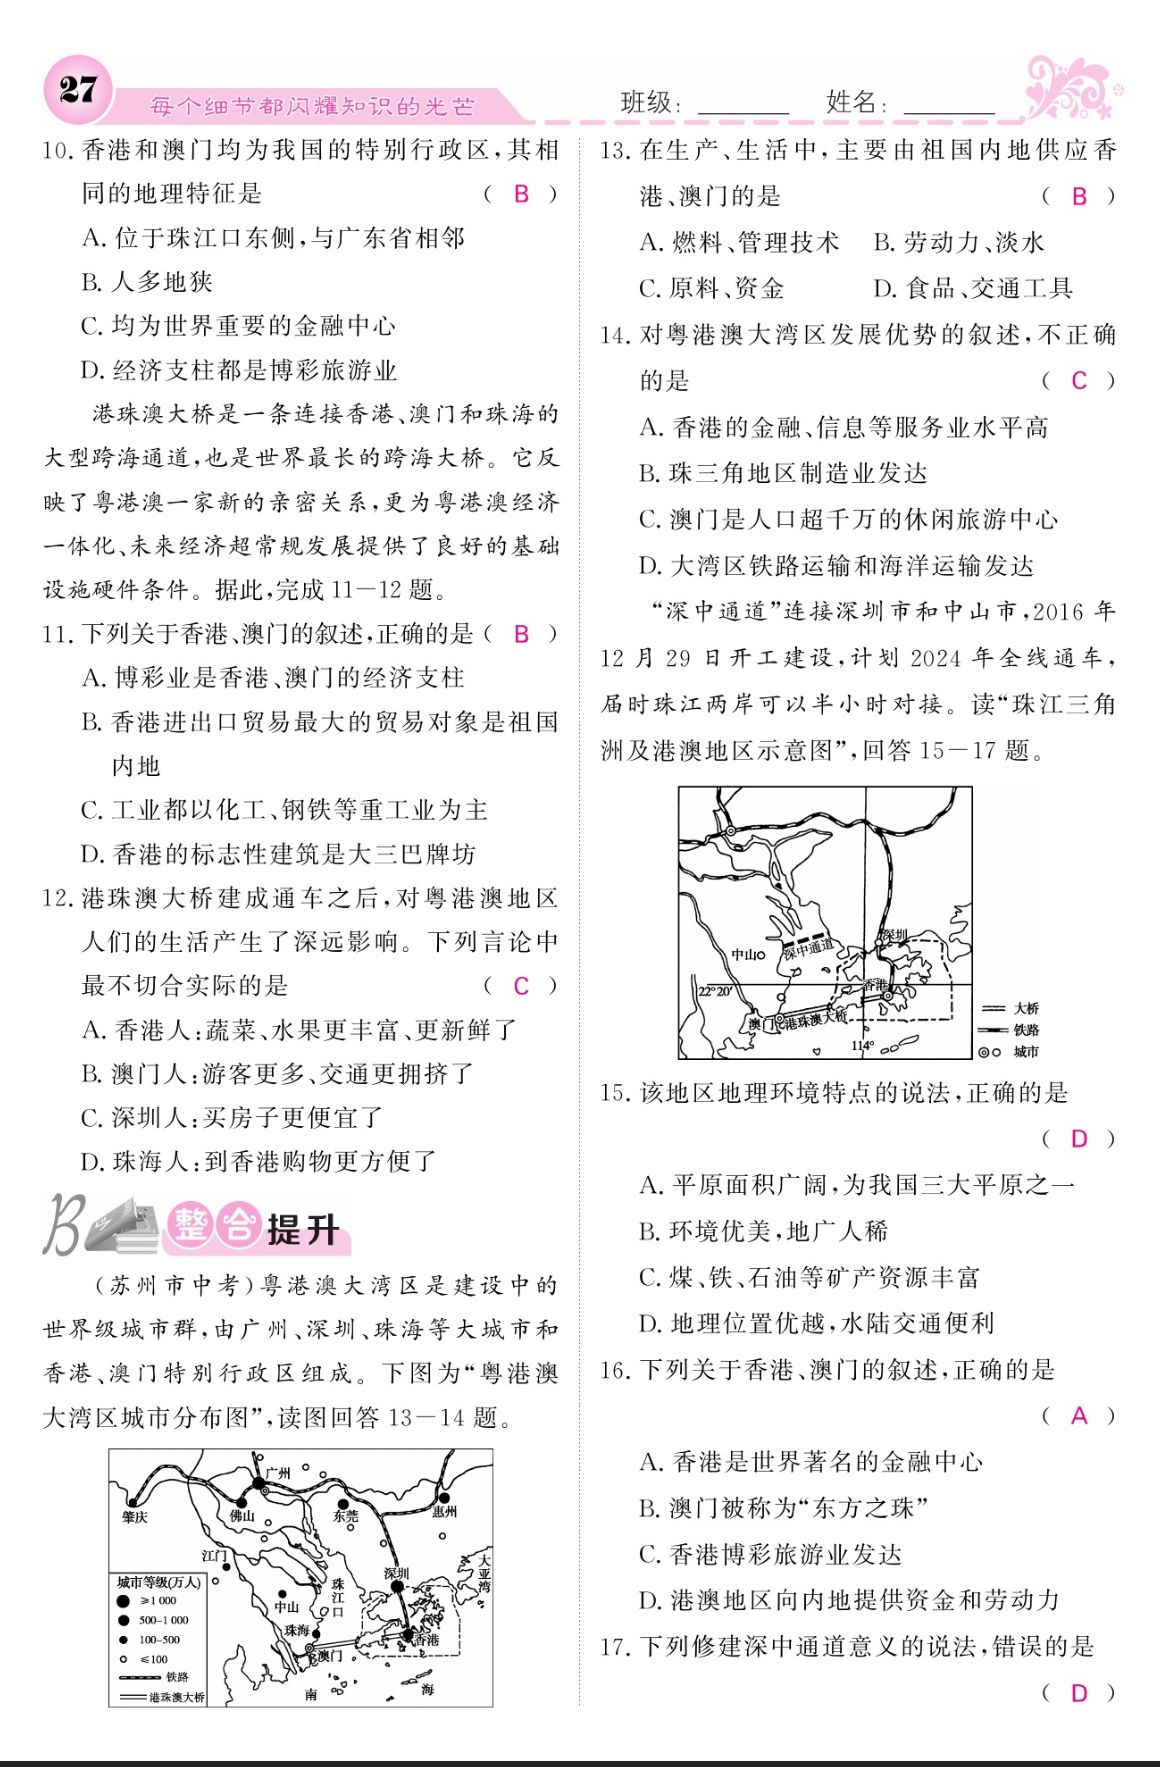 27
每个细节都闪耀知识的光芒
班级：
姓名：
10. 香港和澳门均为我国的特别行政区,其相
同的地理特征是 （ B ）
A. 位于珠江口东侧,与广东省相邻
B. 人多地狭
C. 均为世界重要的金融中心
D. 经济支柱都是博彩旅游业
港珠澳大桥是一条连接香港、澳门和珠海的
大型跨海通道,也是世界最长的跨海大桥。它反
映了粤港澳一家新的亲密关系,更为粤港澳经济
一体化、未来经济超常规发展提供了良好的基础
设施硬件条件。据此,完成 11－12 题。
11. 下列关于香港、澳门的叙述,正确的是（ B ）
A. 博彩业是香港、澳门的经济支柱
B. 香港进出口贸易最大的贸易对象是祖国
内地
C. 工业都以化工、钢铁等重工业为主
D. 香港的标志性建筑是大三巴牌坊
12. 港珠澳大桥建成通车之后,对粤港澳地区
人们的生活产生了深远影响。下列言论中
最不切合实际的是 （ C ）
A. 香港人:蔬菜、水果更丰富、更新鲜了
B. 澳门人:游客更多、交通更拥挤了
C. 深圳人:买房子更便宜了
D. 珠海人:到香港购物更方便了
B 整合提升
（苏州市中考）粤港澳大湾区是建设中的
世界级城市群,由广州、深圳、珠海等大城市和
香港、澳门特别行政区组成。下图为“粤港澳
大湾区城市分布图”,读图回答 13－14 题。
广州
肇庆
佛山
东莞
惠州
江门
深圳
大亚湾
中山
珠江口
珠海
香港
澳门
南
海
城市等级(万人)
≥1 000
500–1 000
100–500
≤100
铁路
港珠澳大桥
13. 在生产、生活中,主要由祖国内地供应香
港、澳门的是 （ B ）
A. 燃料、管理技术 B. 劳动力、淡水
C. 原料、资金 D. 食品、交通工具
14. 对粤港澳大湾区发展优势的叙述,不正确
的是 （ C ）
A. 香港的金融、信息等服务业水平高
B. 珠三角地区制造业发达
C. 澳门是人口超千万的休闲旅游中心
D. 大湾区铁路运输和海洋运输发达
“深中通道”连接深圳市和中山市,2016 年
12 月 29 日开工建设,计划 2024 年全线通车,
届时珠江两岸可以半小时对接。读“珠江三角
洲及港澳地区示意图”,回答 15－17 题。
深圳
中山
深中通道
22°20′
香港
澳门
港珠澳大桥
114°
大桥
铁路
城市
15. 该地区地理环境特点的说法,正确的是
（ D ）
A. 平原面积广阔,为我国三大平原之一
B. 环境优美,地广人稀
C. 煤、铁、石油等矿产资源丰富
D. 地理位置优越,水陆交通便利
16. 下列关于香港、澳门的叙述,正确的是
（ A ）
A. 香港是世界著名的金融中心
B. 澳门被称为“东方之珠”
C. 香港博彩旅游业发达
D. 港澳地区向内地提供资金和劳动力
17. 下列修建深中通道意义的说法,错误的是
（ D ）